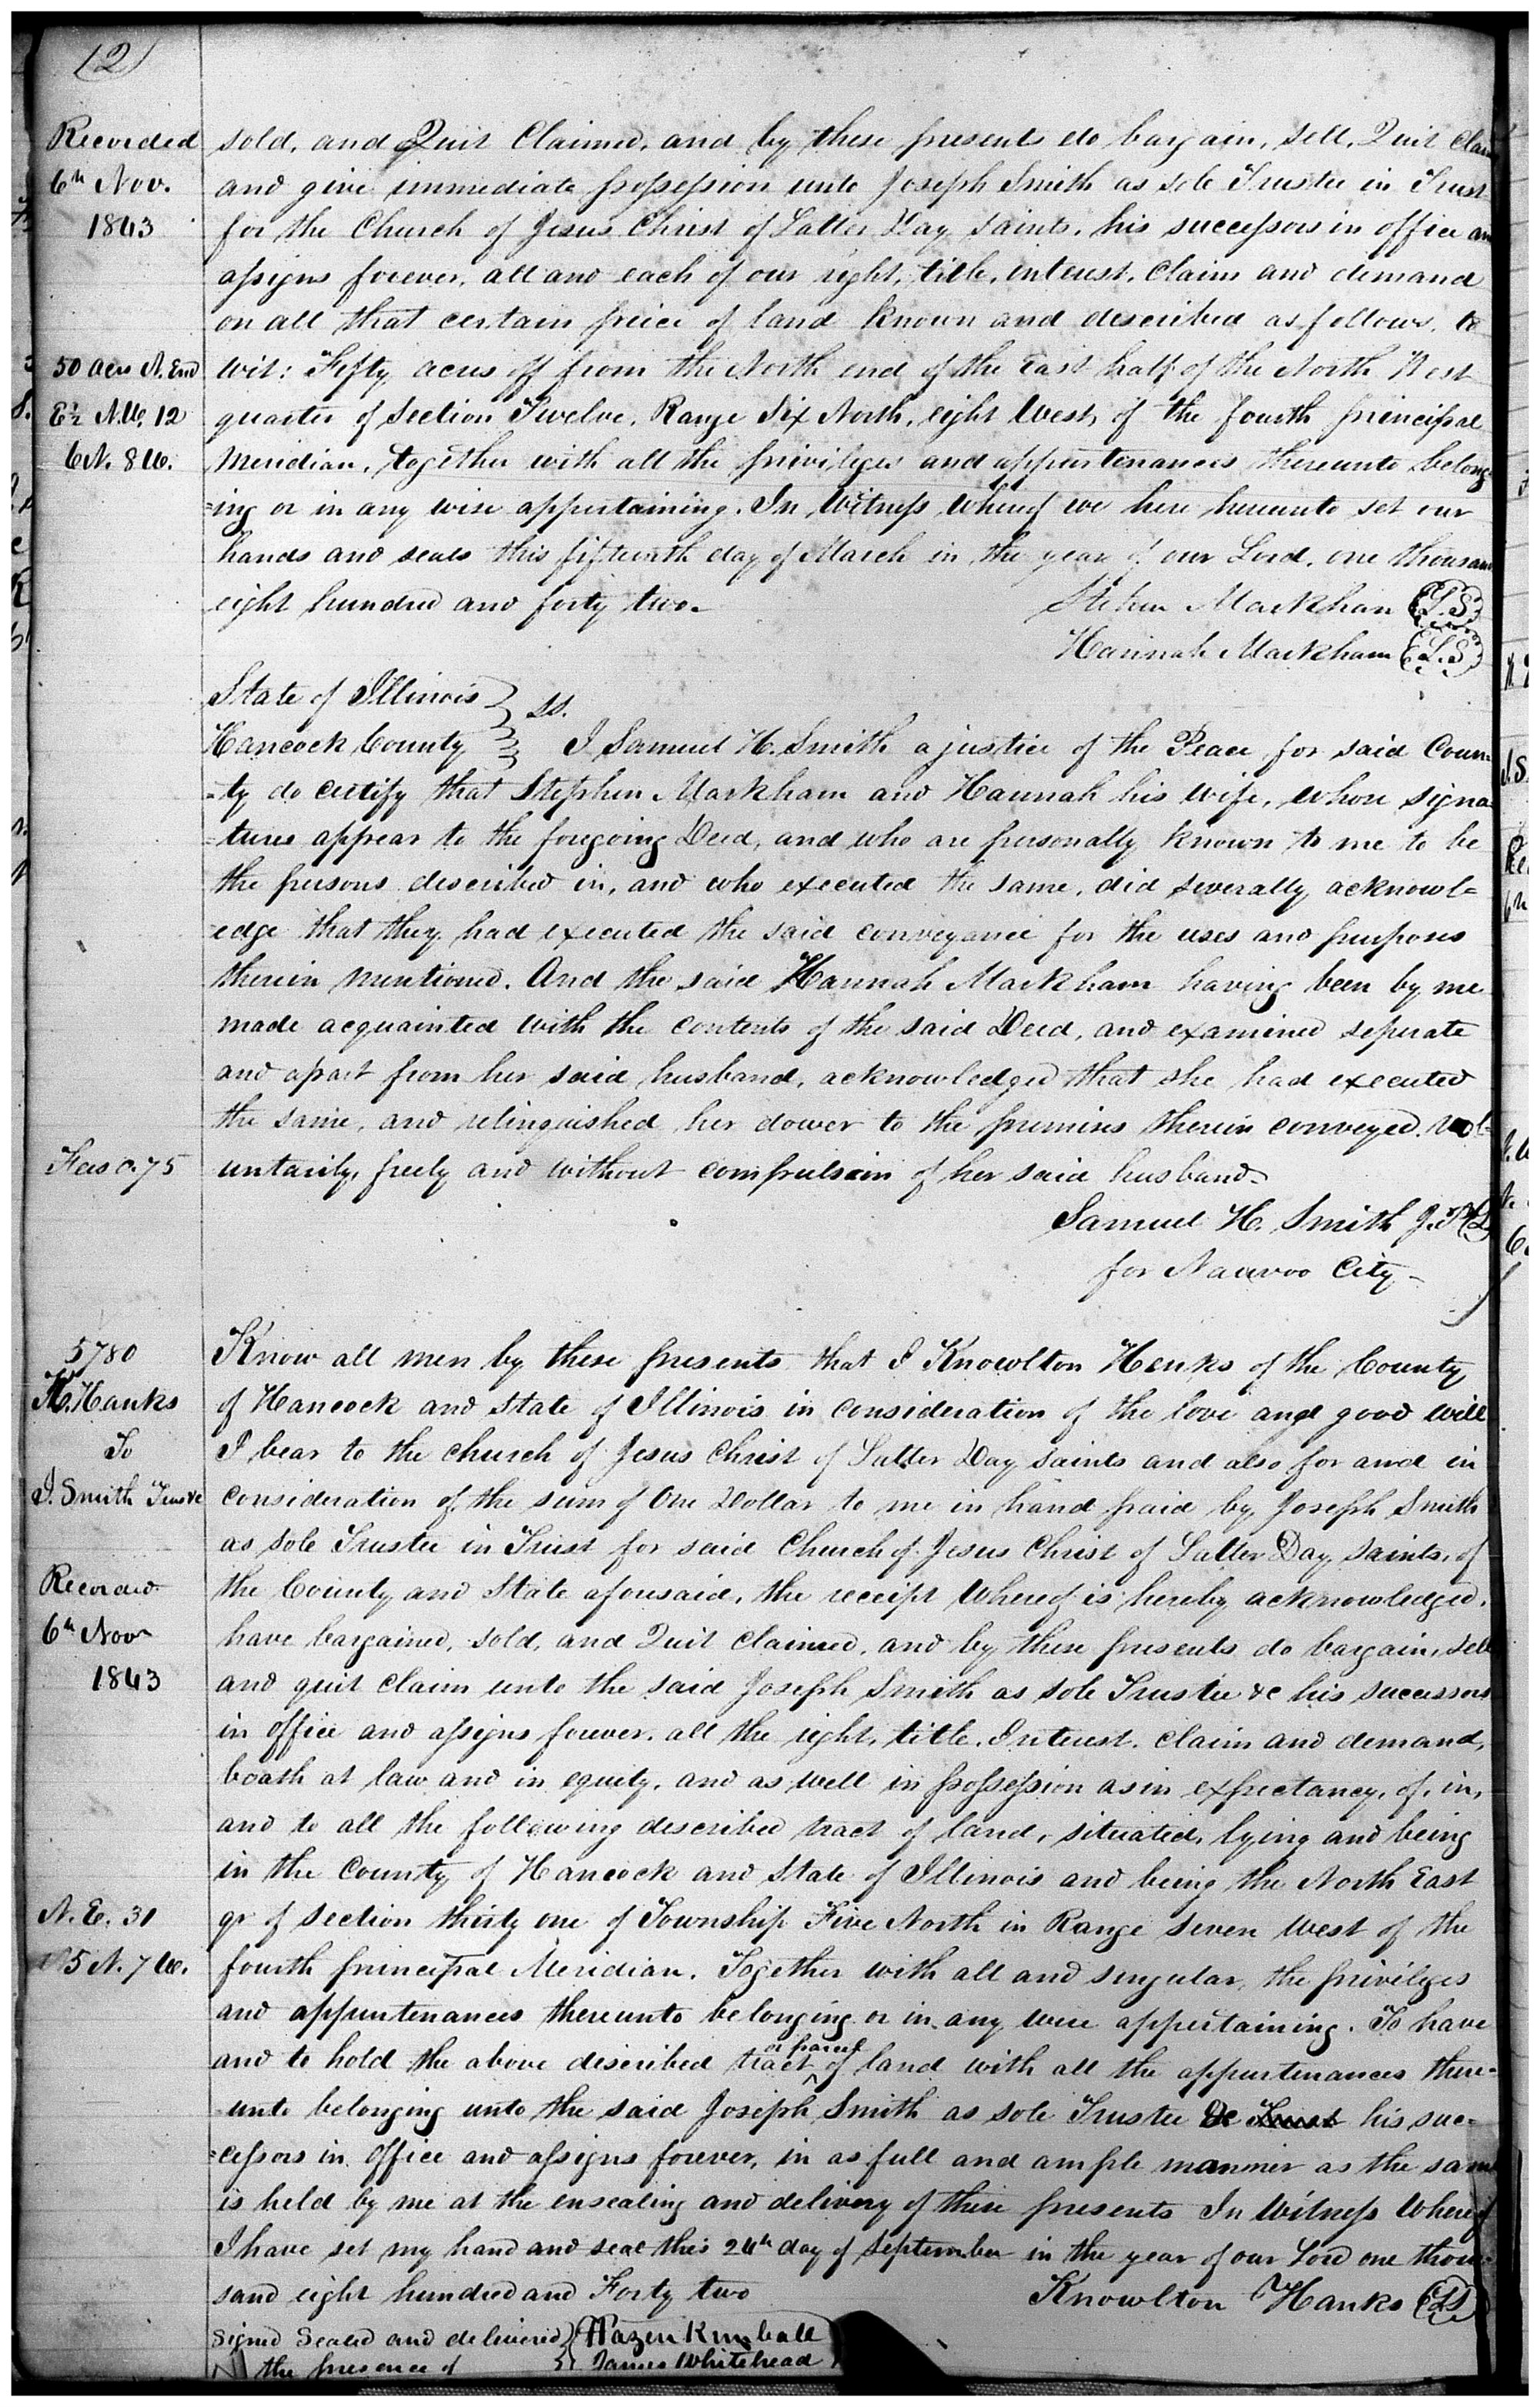 (2)
Recorded
6th Nov.
1843
sold, and Quit Claimed, and by these presents do bargain, sell, Quit Claim
and give immediate possession unto Joseph Smith as sole Trustee in Trust
for the Church of Jesus Christ of Latter Day Saints, his successors in office an
assigns forever, all and each of our right, title, interest, Claim and demand
on all that certain peice of land known and described as follows, to
50 acres N. End
E ½ N.W. 12
6 N. 8 W.
wit: Fifty acres off from the North end of the East half of the North West
quarter of Section Twelve, Range Six North, eight West, of the fourth principal
Meridian, together with all the privileges and appurtenances thereunto belong-
=ing or in any wise appertaining. In Witness Whereof we here hereunto set our
hands and seals this fifteenth day of March in the year of our Lord, one thousand
eight hundred and forty two.
Stephen Markham (L.S)
Hannah Markham (L.S)
State of Illinois } ss.
Hancock County } I Samuel H. Smith a justice of the Peace for said Coun-
=ty do certify that Stephen Markham and Hannah his wife, whose signa
=tures appear to the foregoing Deed, and who are personally known to me to be
the persons described in, and who executed the same, did severally acknowl=
=edge that they had executed the said conveyance for the uses and purposes
therein mentioned. And the said Hannah Markham having been by me
made acquainted with the contents of the said Deed, and examined seperate
and apart from her said husband, acknowledged that she had executed
the same, and relinquished her dower to the premises therein conveyed. vol-
Fees 0.75
untarily, freely and without compulsion of her said husband.
Samuel H. Smith J.P. (LS
for Nauvoo City
5780
K. Hanks
To
J. Smith Trustee
Recorded
6th Nov
1843
Know all men by these presents that I Knowlton Hanks of the County
of Hancock and State of Illinois in consideration of the love and good will
I bear to the church of Jesus Christ of Latter Day Saints and also for and in
consideration of the sum of One Dollar to me in hand paid by Joseph Smith
as sole Trustee in Trust for said Church of Jesus Christ of Latter Day Saints, of
the County and State aforesaid, the receipt whereof is hereby acknowledged,
have bargained, sold, and Quit claimed, and by these presents do bargain, sell
and quit claim unto the said Joseph Smith as sole Trustee &c his successors
in office and assigns forever, all the right, title, Interest, claim and demand,
boath at law and in equity, and as well in possession as in expectancy, of, in,
and to all the following described tract of land, situated, lying and being
in the County of Hancock and State of Illinois and being the North East
N. E. 31
5 N. 7 W.
qr of section thirty one of Township Five North in Range Seven West of the
fourth principal Meridian. Together with all and singular, the privileges
and appurtenances thereunto belonging or in any wise appertaining. To have
and to hold the above discribed tract or parcel of land with all the appurtenances there=
=unto belonging unto the said Joseph Smith as sole Trustee &c Trust his suc-
=cessors in office and assigns forever, in as full and ample manner as the same
is held by me at the ensealing and delivery of these presents In Witness Whereof
I have set my hand and seal this 24th day of September in the year of our Lord one thou-
sand eight hundred and Forty two
Knowlton Hanks (LS)
Signed Sealed and delivered } Hazen Kimball
In the presence of } James Whitehead